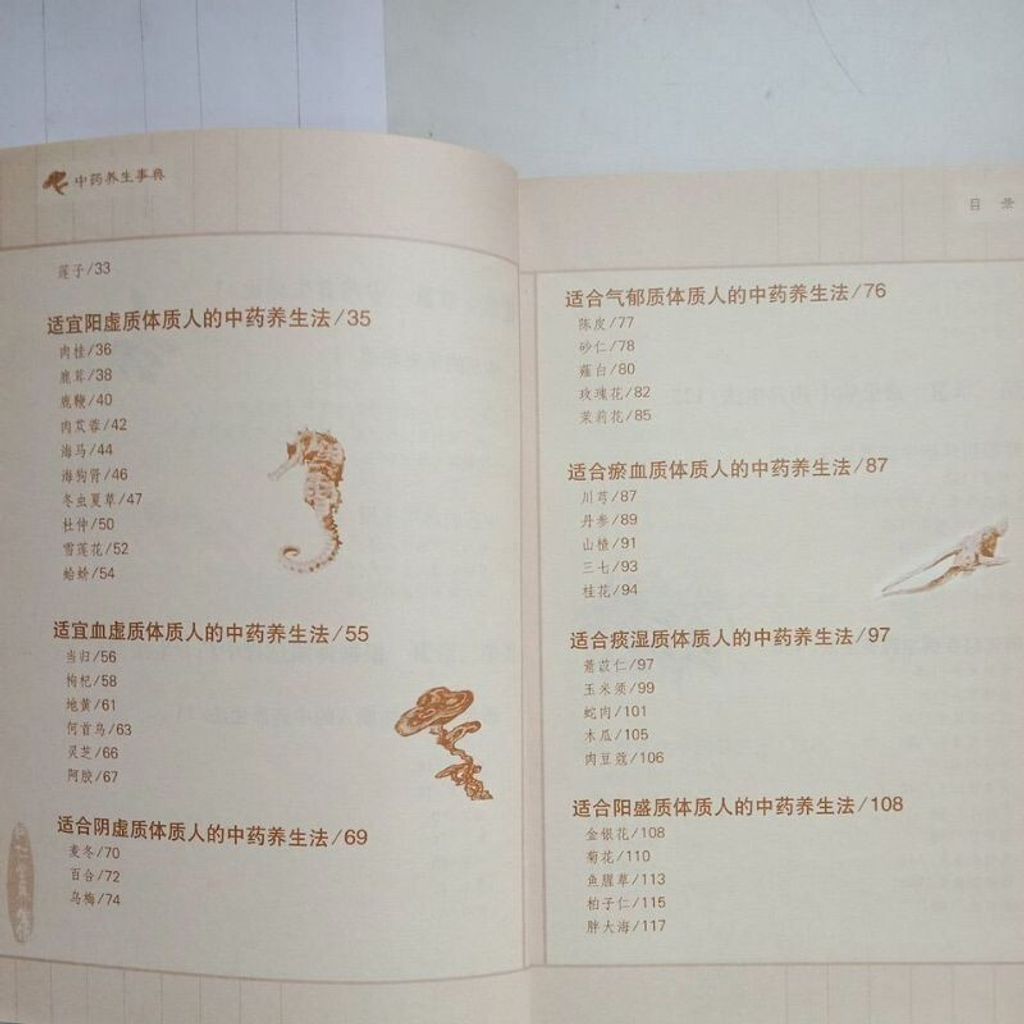 中药养生事典
莲子/33
适宜阳虚质体质人的中药养生法/35
肉桂/36
鹿茸/38
鹿鞭/40
肉苁蓉/42
海马/44
海狗肾/46
冬虫夏草/47
杜仲/50
雪莲花/52
蛤蚧/54
适宜血虚质体质人的中药养生法/55
当归/56
枸杞/58
地黄/61
何首乌/63
灵芝/66
阿胶/67
适合阴虚质体质人的中药养生法/69
麦冬/70
百合/72
乌梅/74
目 录
适合气郁质体质人的中药养生法/76
陈皮/77
砂仁/78
薤白/80
玫瑰花/82
茉莉花/85
适合瘀血质体质人的中药养生法/87
川芎/87
丹参/89
山楂/91
三七/93
桂花/94
适合痰湿质体质人的中药养生法/97
薏苡仁/97
玉米须/99
蛇肉/101
木瓜/105
肉豆蔻/106
适合阳盛质体质人的中药养生法/108
金银花/108
菊花/110
鱼腥草/113
柏子仁/115
胖大海/117